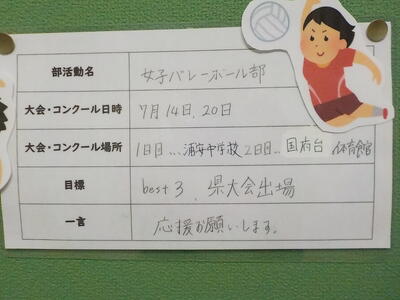 部活動名 女子バレーボール部
大会・コンクール日時 7月14日、20日
大会・コンクール場所 1日目…浦安中学校 2日目…国府台 体育館
目標 best3、県大会出場
一言 応援お願いします。